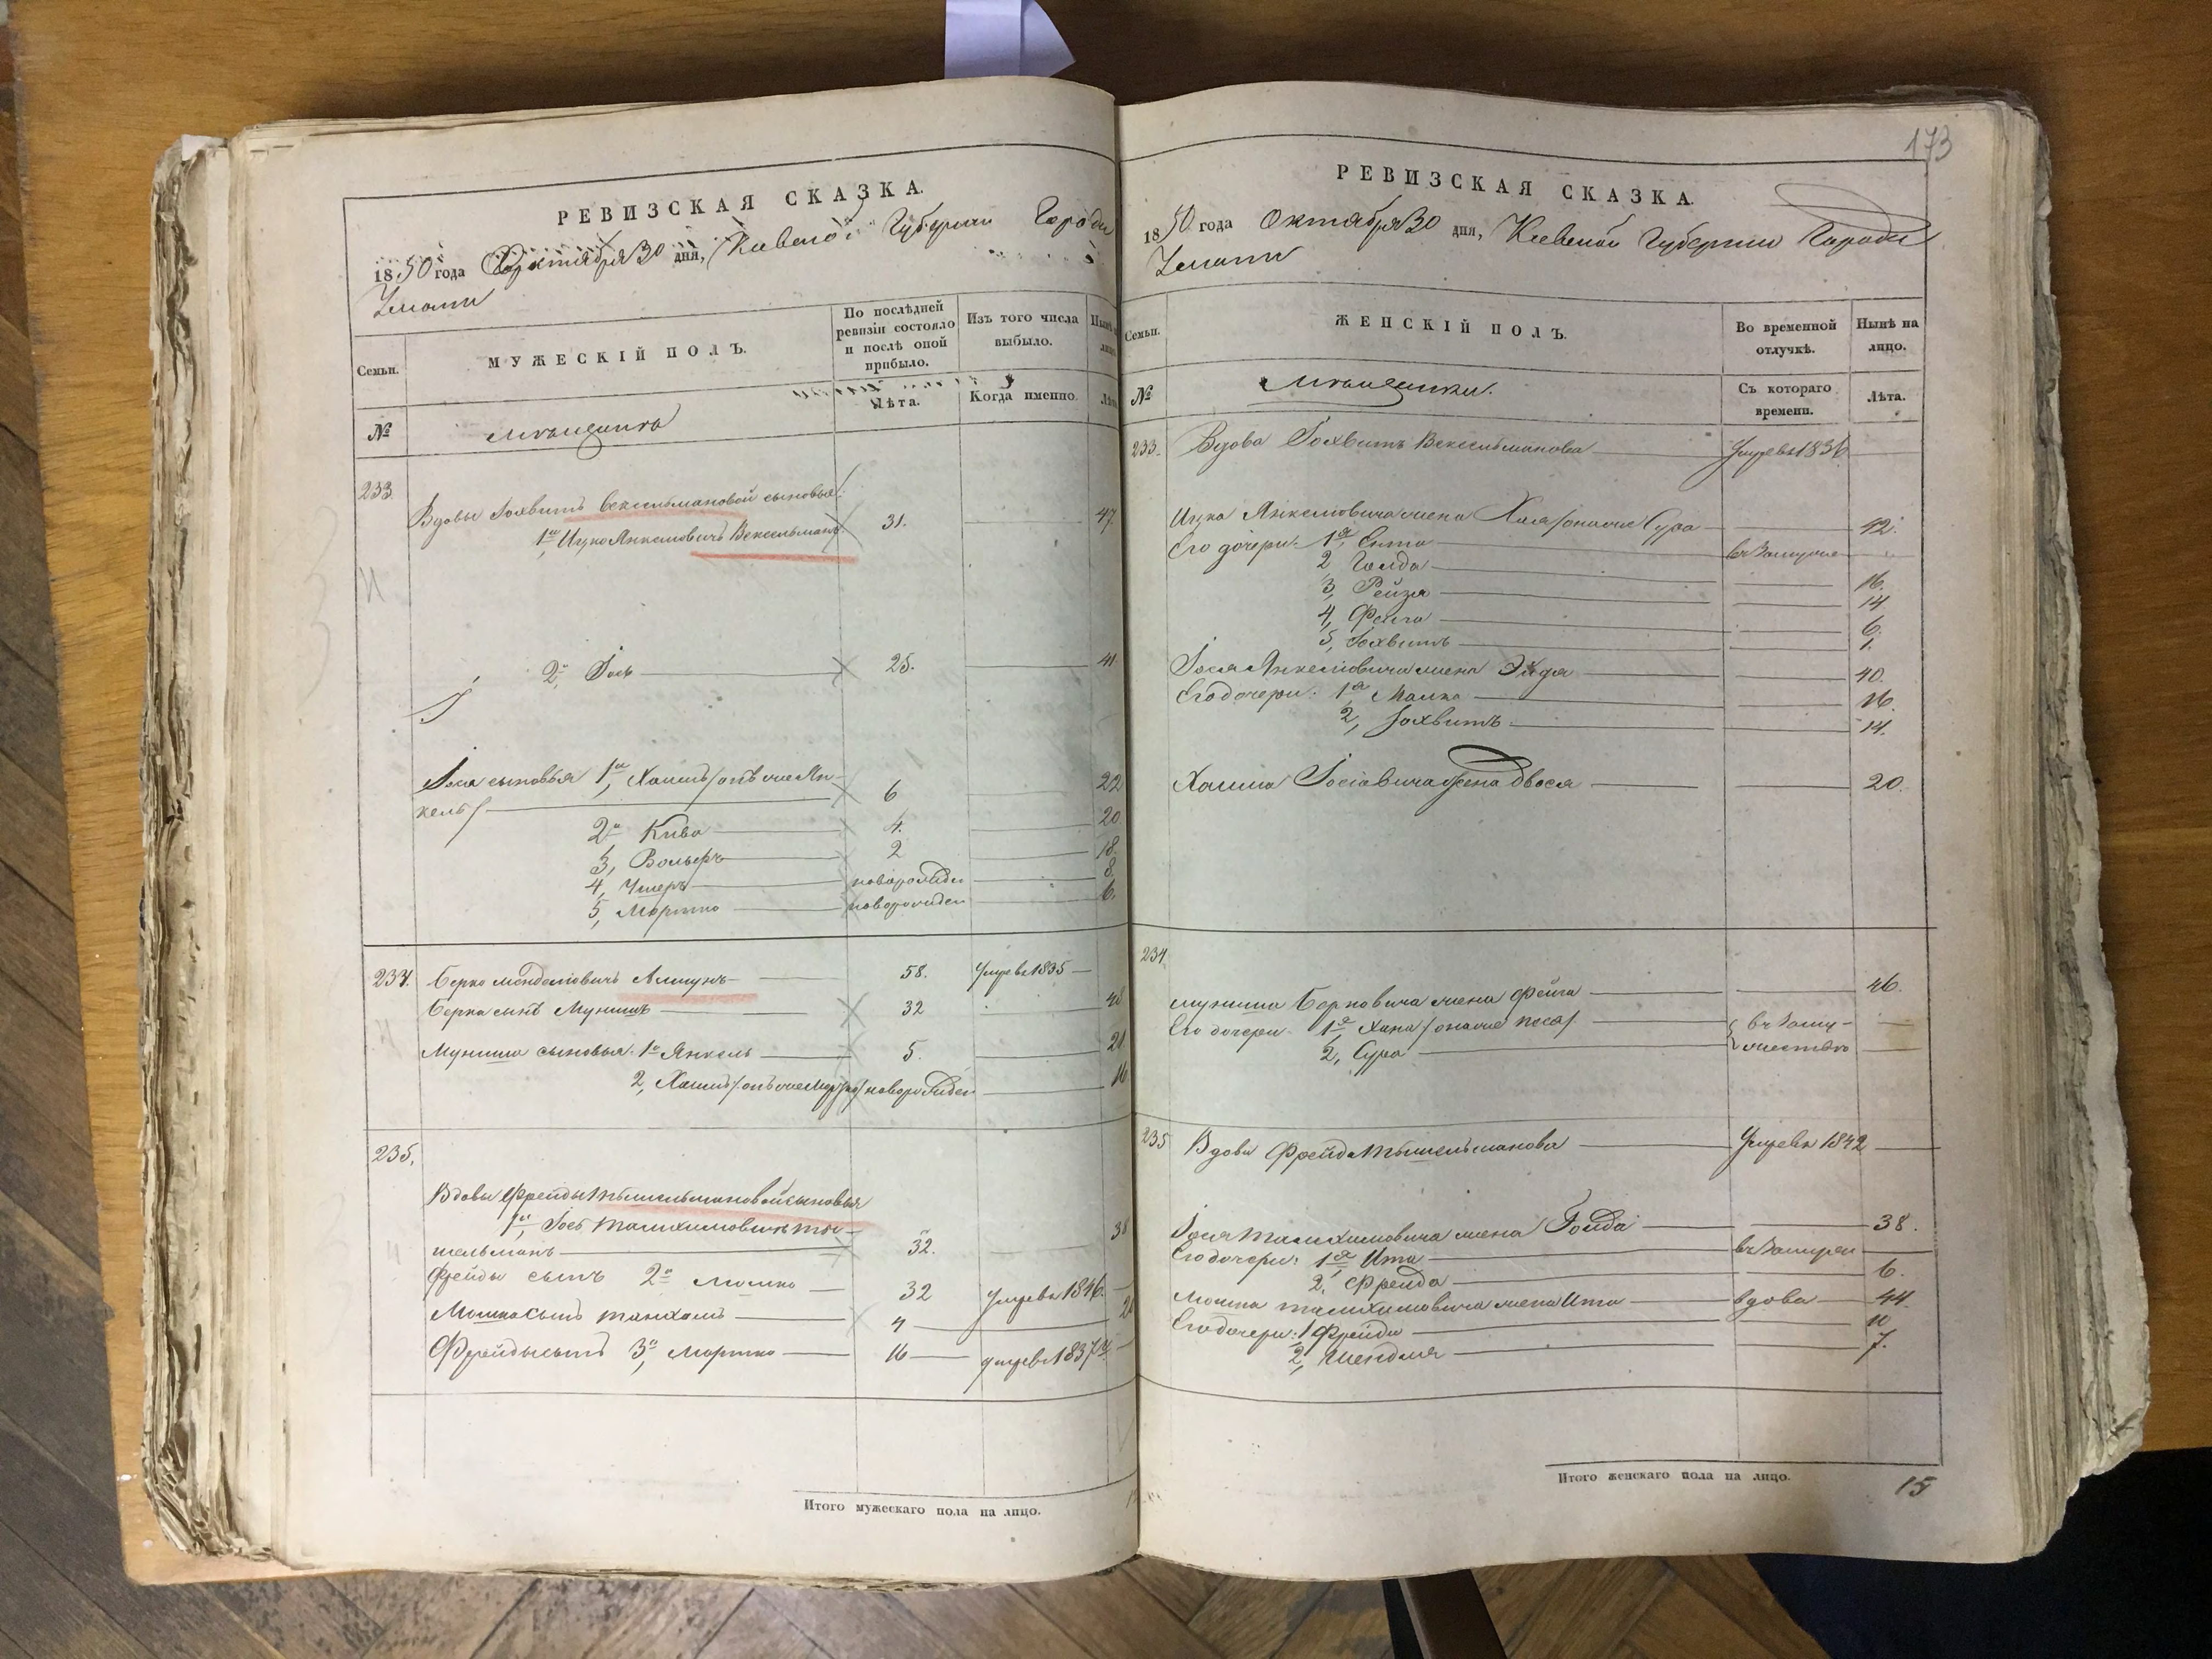 РЕВИЗСКАЯ СКАЗКА.
1850 года Октября 30 дня, Киевской Губернии Города
Умани
Семьи.
МУЖЕСКІЙ ПОЛЪ.
По послѣдней
ревизіи состояло
и послѣ оной
прибыло.
Изъ того числа
выбыло.
Нынѣ
№
Мѣщане
Лѣта.
Когда именно.
Лѣта
233.
Вдовы Іохвитъ Вексельмановой сыновья:
1й Ицко Янкелловичъ Вексельманъ 31. 47.
2й Іось 25. 41
Іося сыновья 1й, Хаимъ /онъ же Ян-
кель/ 6 22
2й Кива 4. 20
3, Вольфъ 2 18.
4, Умеръ новорожден 8
5, Мортко новорожден 6.
234. Берко Менделіовичъ 58. Умре въ 1835
Берка сынъ Мунишъ 32 48
Муниша сыновья: 1й Янкель 5. 21
2, Хаимъ /онъ же Мортко/ новорожден 16
235.
Вдовы Фрейды Тышельмановой сыновья
1й, Іось Танхимовичъ Ты-
шельманъ 32. 38
Фрейды сынъ 2й Мошко 32 Умре въ 1846
Мошка сынъ Танхомъ 4 20
Фрейды сынъ 3й, Мортко 16 умре въ 1837
Итого мужескаго пола на лицо.
173
РЕВИЗСКАЯ СКАЗКА.
1850 года Октября 30 дня, Киевской Губернии Города
Умани
Семьи.
ЖЕНСКІЙ ПОЛЪ.
Во временной
отлучкѣ.
Нынѣ на
лицо.
№
Мѣщанки.
Съ котораго
времени.
Лѣта.
233. Вдова Іохвитъ Вексельманова Умре въ 1836
Ицка Янкеловича жена Хая /она же Сура 42.
Его дочери: 1я, Ента въ Замужѣ
2, Голда 16.
3, Рейзя 14
4, Фейга 6.
5, Іохвитъ 1.
Іося Янкеліовича жена Эйдя 40.
Его дочери: 1я, Малка 16.
2, Іохвитъ 14.
Хаима Іосіовича жена Двося 20.
234
Муниша Берковича жена Фейга 46.
Его дочери: 1я, Хана /она же Песа/ въ Заму-
2, Сура жествѣ
235 Вдова Фрейда Тышельманова Умре въ 1842
Іося Танхимовича жена Голда 38.
Его дочери: 1я Ита въ Замуже
2, Фрейда 6.
Мошка Танхимовича жена Ита вдова 44.
Его дочери: 1 Фрейда 10
2, Шендля 7.
Итого женскаго пола на лицо. 15